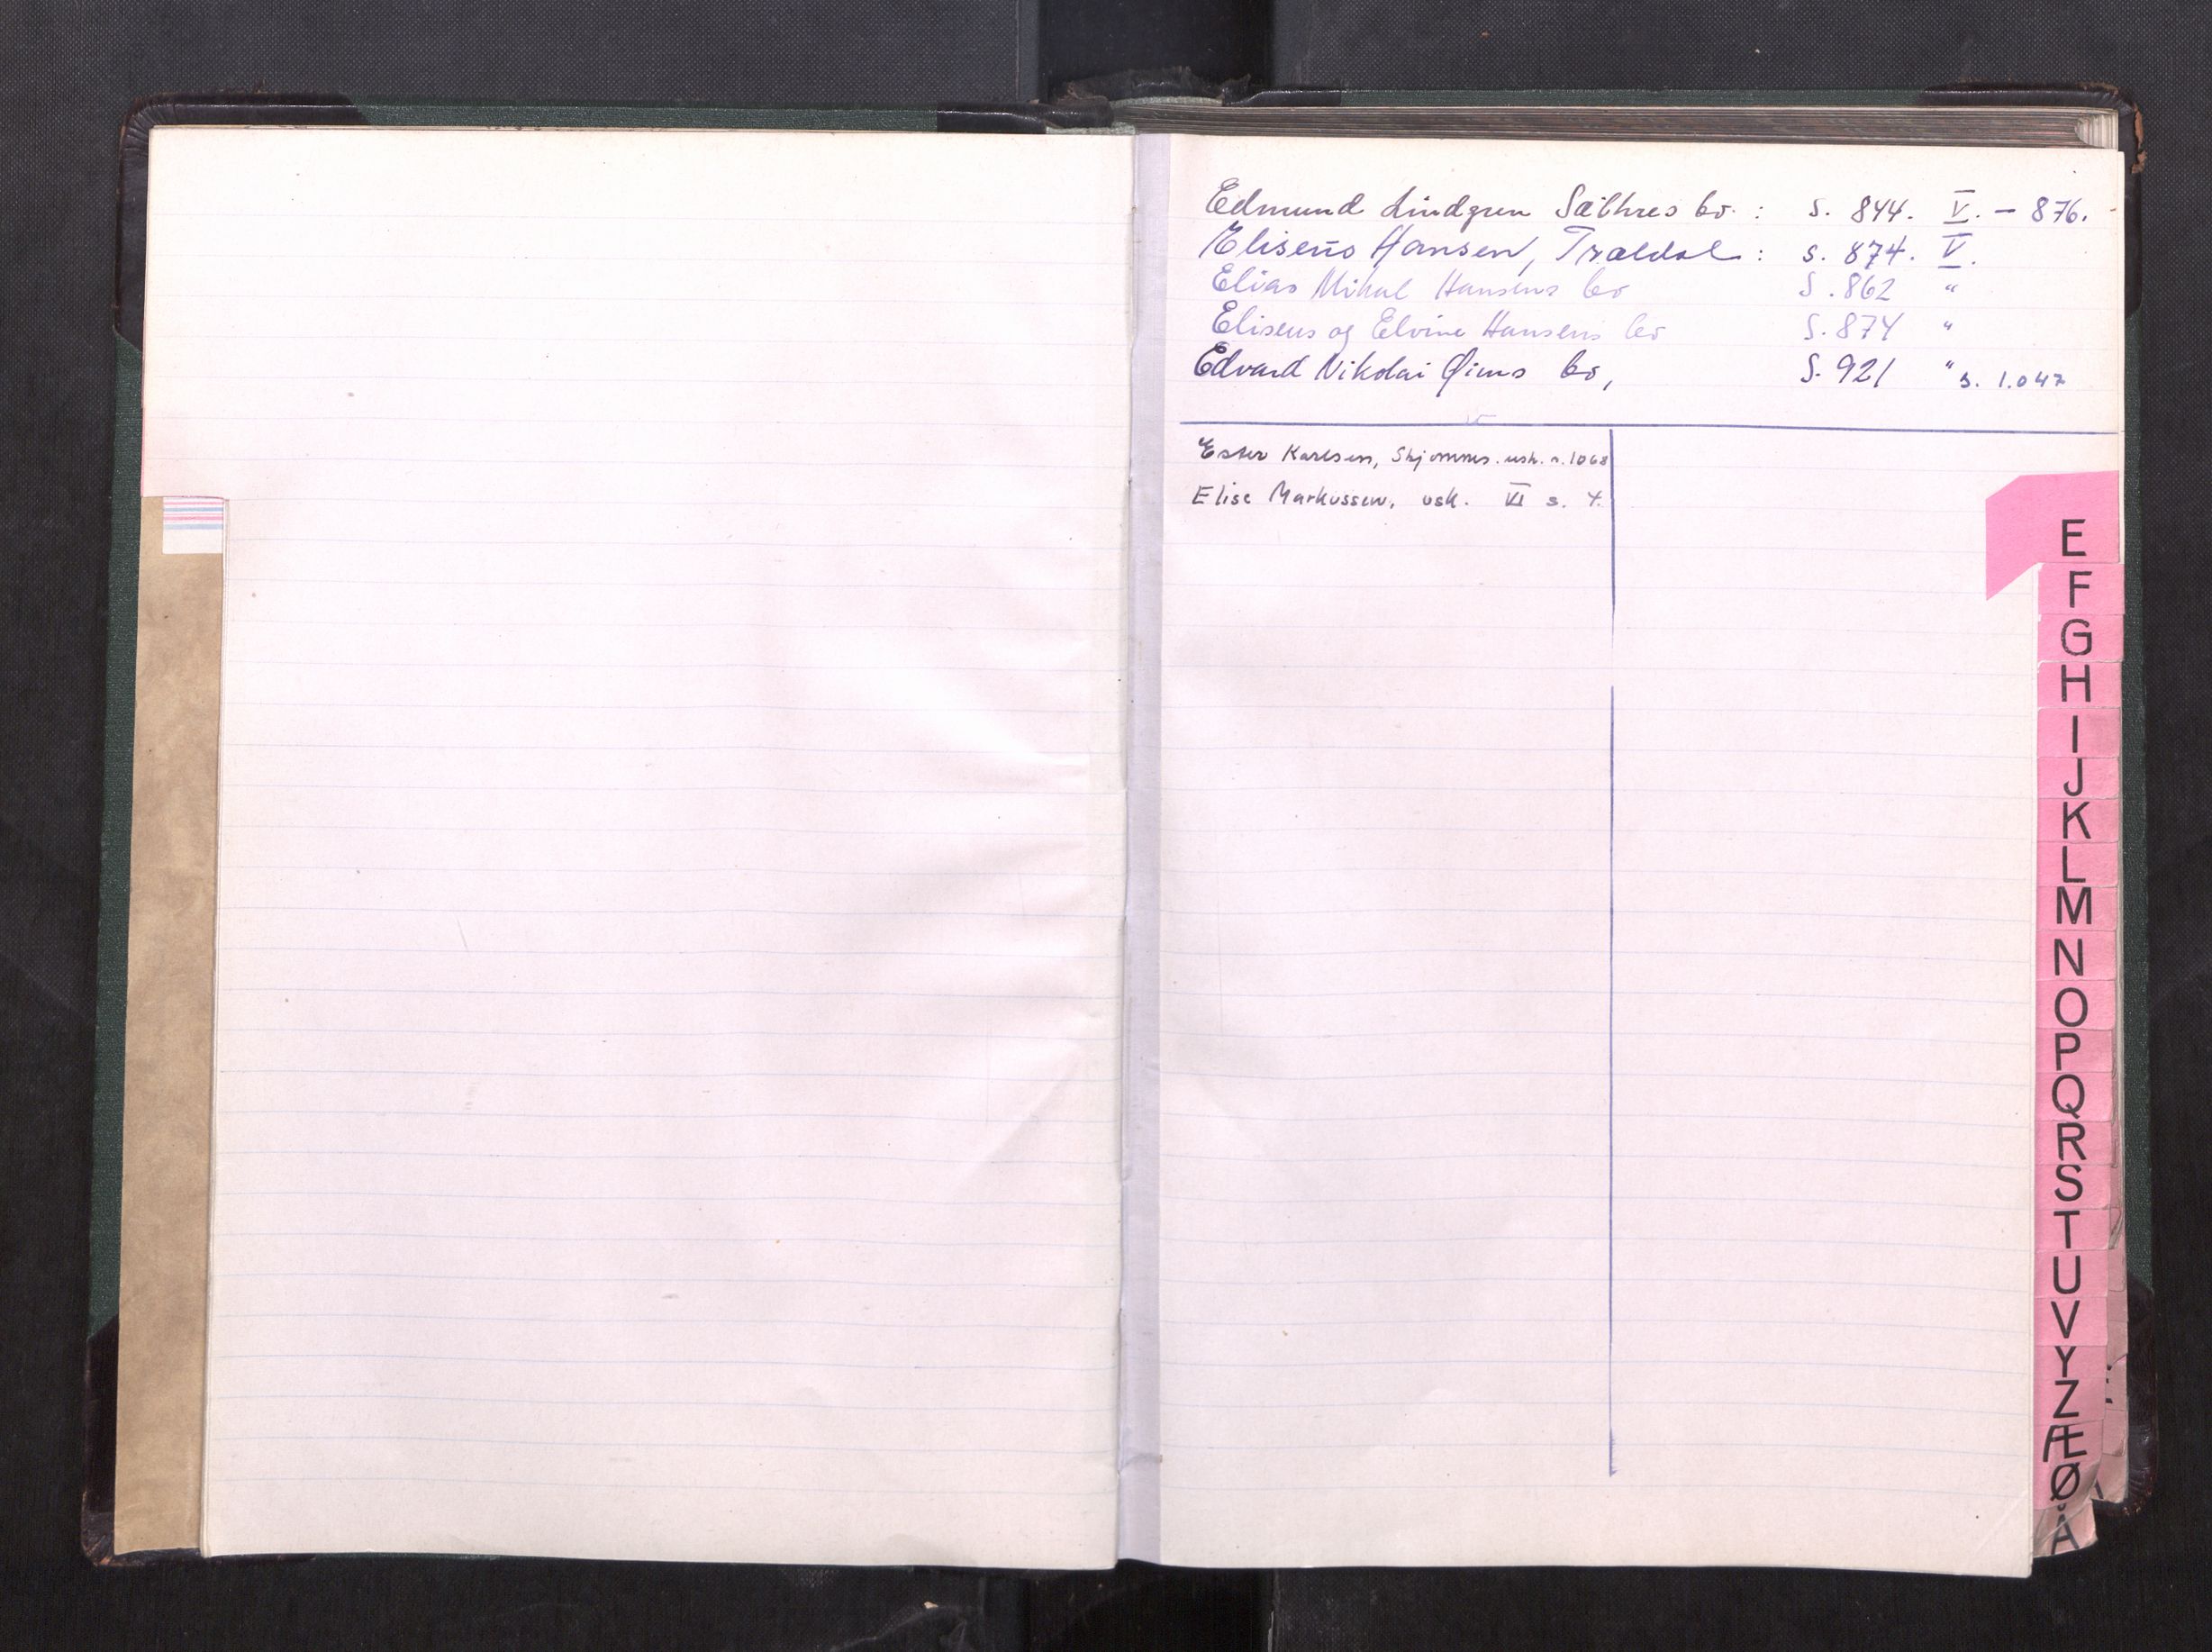 Edmund Lindgren Sæthres bo : S. 844. V. - 876.
Eliseus Hansen, Traldal : s. 874. V.
Elias Mikal Hansens bo S. 862 "
Eliseus og Elvine Hansens bo S. 874 "
Edvard Nikolai Øiens bo, S. 921 " s. 1.047
V
Ester Karlsen, Skjomnes. usk. s. 1068
Elise Markussen, usk. VI s. 4.
E
F
G
H
I
J
K
L
M
N
O
P
Q
R
S
T
U
V
Y
Z
Æ
Ø
Å